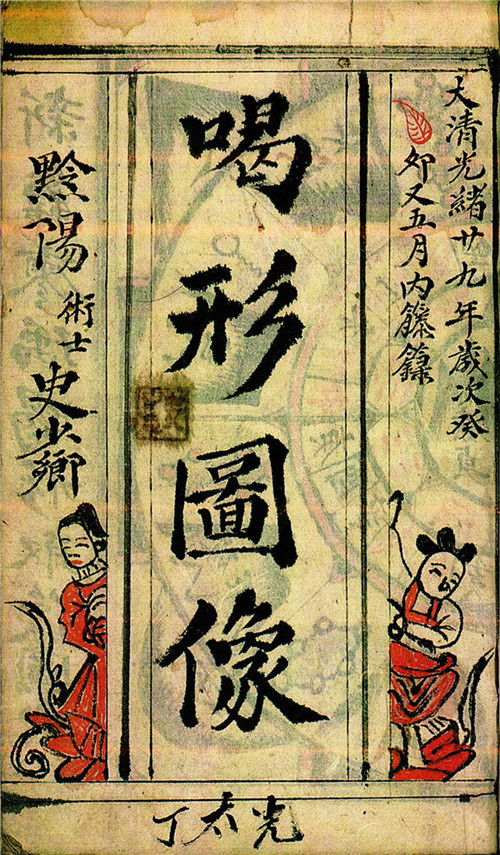 大清光緒廿九年歲次癸
卯又五月内
喝形圖像
黔陽 術士 史少卿
光太丁